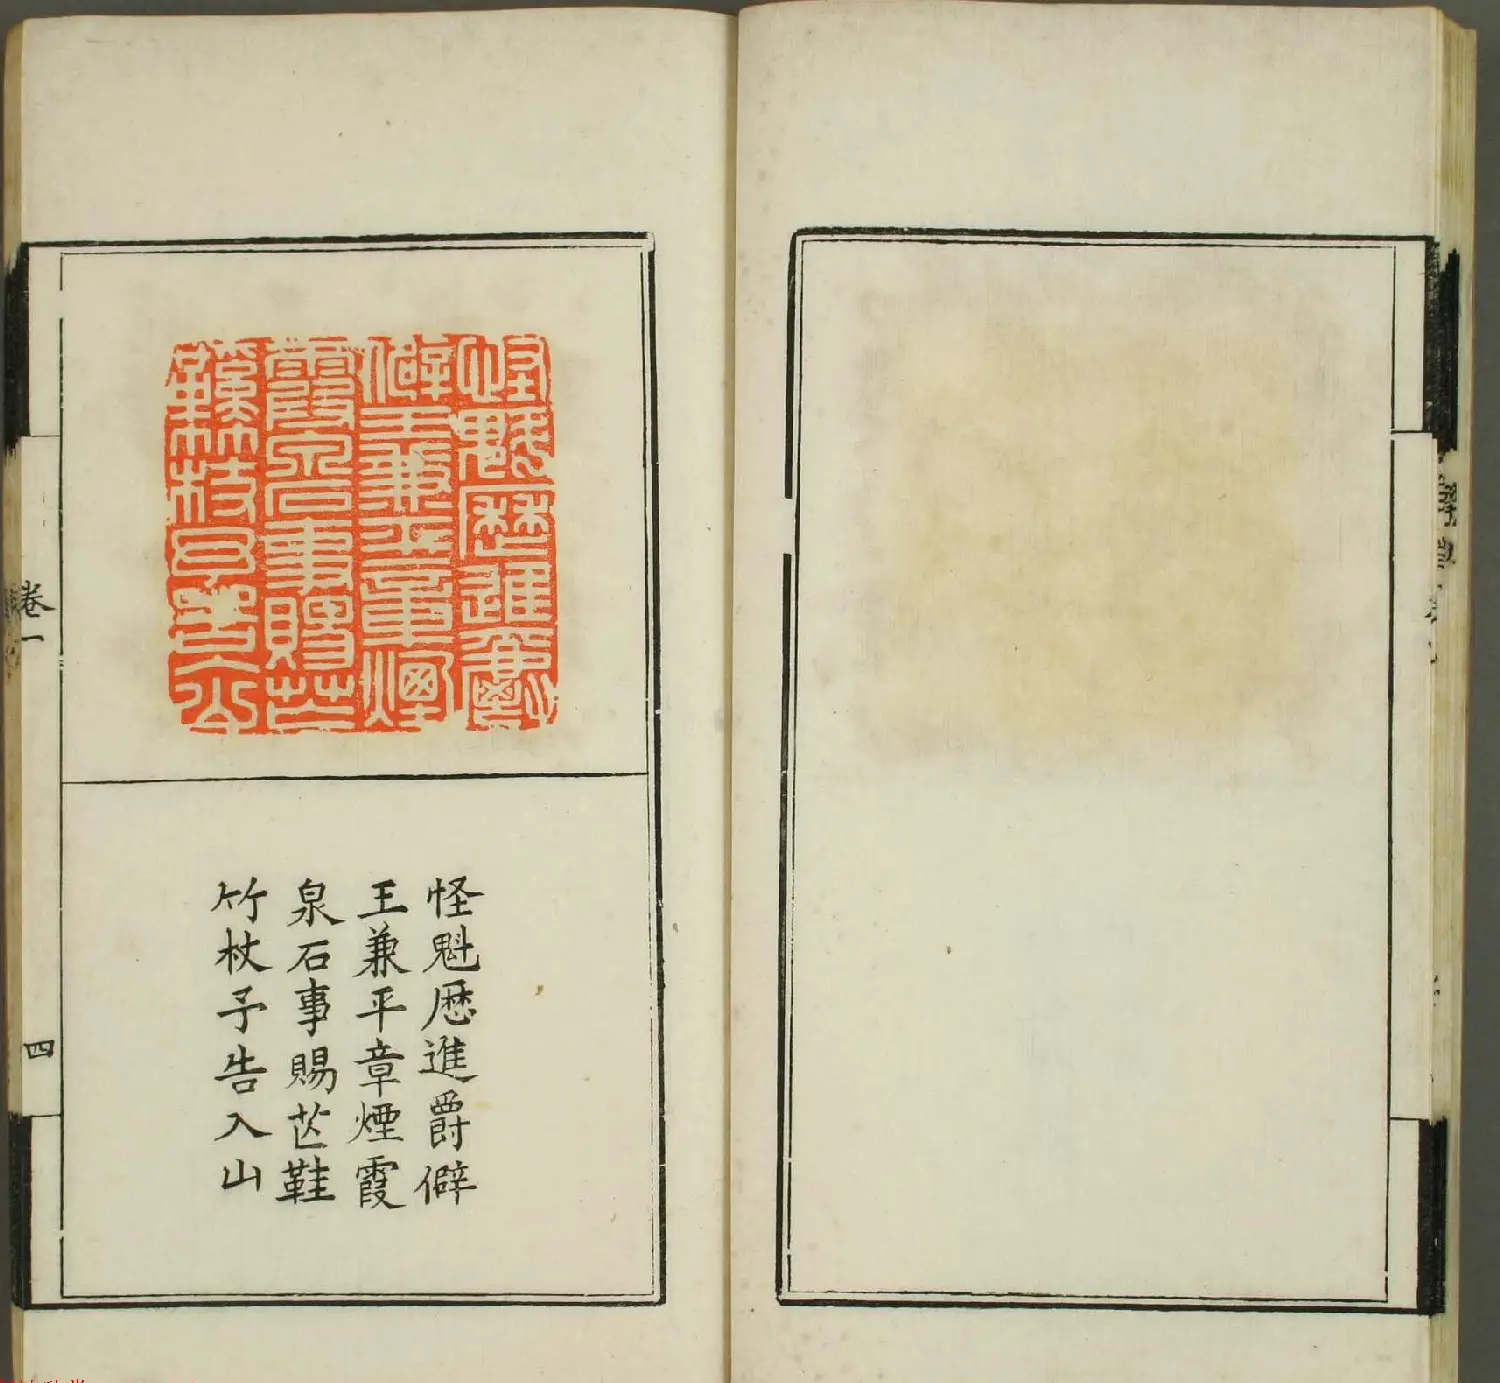 怪魁歷進爵僻
王兼平章煙霞
泉石事賜芒鞋
竹杖予告入山
怪魁厯進爵僻
王兼平章煙霞
泉石事賜芒鞵
竹杖予告入山
卷一
四